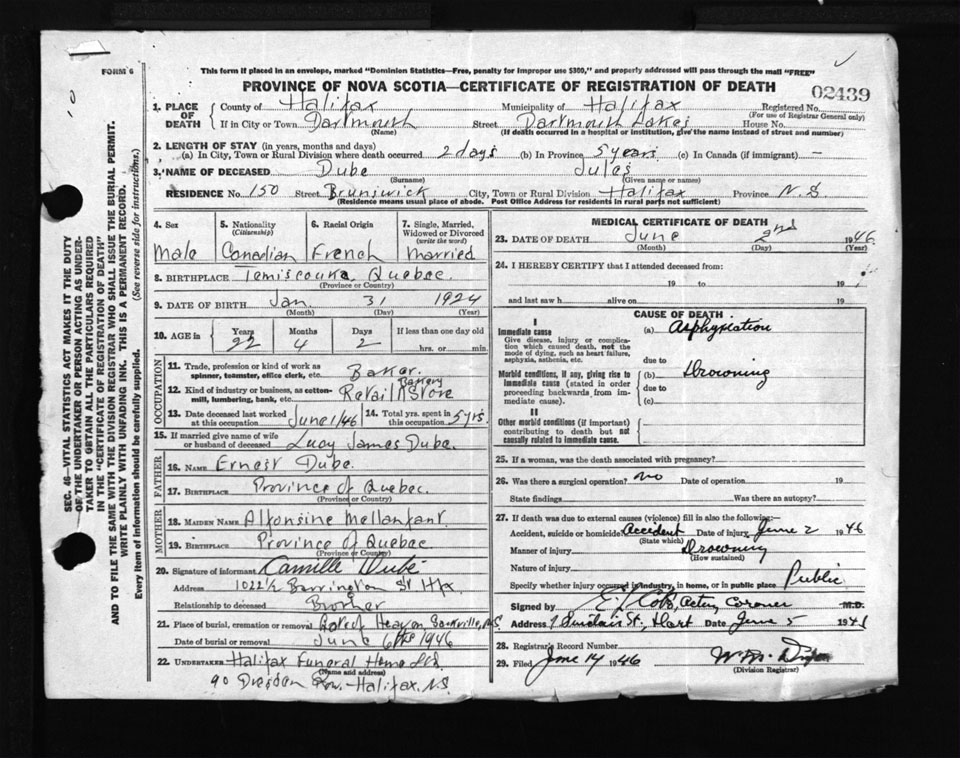 FORM 6
This form if placed in an envelope, marked "Dominion Statistics—Free, penalty for improper use $300," and properly addressed will pass through the mail "FREE"
PROVINCE OF NOVA SCOTIA—CERTIFICATE OF REGISTRATION OF DEATH
02439
1. PLACE OF DEATH
County of Halifax Municipality of Halifax Registered No.
(For use of Registrar General only)
If in City or Town Dartmouth Street Dartmouth Lakes House No.
(Name) (If death occurred in a hospital or institution, give the name instead of street and number)
2. LENGTH OF STAY (in years, months and days)
(a) In City, Town or Rural Division where death occurred 2 days (b) In Province 5 years (c) In Canada (if immigrant) —
3. NAME OF DECEASED Dube Jules
(Surname) (Given name or names)
RESIDENCE No. 150 Street Brunswick City, Town or Rural Division Halifax Province N.S
(Residence means usual place of abode. Post Office Address for residents in rural parts not sufficient)
4. Sex 5. Nationality (Citizenship) 6. Racial Origin 7. Single, Married, Widowed or Divorced (write the word)
Male Canadian French Married
8. BIRTHPLACE Temiscouna Quebec.
(Province or Country)
9. DATE OF BIRTH Jan. 31 1924
(Month) (Day) (Year)
10. AGE in Years Months Days If less than one day old
22 4 2 hrs. or min.
OCCUPATION
11. Trade, profession or kind of work as spinner, teamster, office clerk, etc. Baker.
12. Kind of industry or business, as cotton-mill, lumbering, bank, etc. Retail Bakery Store
13. Date deceased last worked at this occupation June 1/46 14. Total yrs. spent in this occupation 5 yrs.
15. If married give name of wife or husband of deceased Lucy James Dube.
FATHER
16. NAME Ernest Dube.
17. BIRTHPLACE Province of Quebec.
(Province or Country)
MOTHER
18. MAIDEN NAME Alfonsine Mellanfant.
19. BIRTHPLACE Province of Quebec
(Province or Country)
20. Signature of informant Camille Dubé
Address 1022½ Barrington St Hfx
Relationship to deceased Brother
21. Place of burial, cremation or removal Sackville, N.S.
Date of burial or removal June 6th 1946
22. UNDERTAKER Halifax Funeral Home Ltd.
(Name and address)
90 Dresden Row.—Halifax. N.S
MEDICAL CERTIFICATE OF DEATH
23. DATE OF DEATH June 2nd 1946
(Month) (Day) (Year)
24. I HEREBY CERTIFY that I attended deceased from:
19 to 19
and last saw h alive on 19
CAUSE OF DEATH
I
Immediate cause (a) Asphyxiation
Give disease, injury or complication which caused death, not the mode of dying, such as heart failure, asphyxia, asthenia, etc.
due to
Morbid conditions, if any, giving rise to immediate cause (stated in order proceeding backwards from immediate cause).
(b) Drowning
due to
(c)
II
Other morbid conditions (if important) contributing to death but not causally related to immediate cause.
25. If a woman, was the death associated with pregnancy?
26. Was there a surgical operation? no Date of operation 19
State findings Was there an autopsy?
27. If death was due to external causes (violence) fill in also the following:—
Accident, suicide or homicide Accident Date of injury June 2 1946
(State which)
Manner of injury Drowning
(How sustained)
Nature of injury
Specify whether injury occurred in industry, in home, or in public place Public
Signed by Acting Coroner M.D.
Address Sinclair St., Date June 5 194
28. Registrar's Record Number
29. Filed June 14 1946
(Division Registrar)
SEC. 46—VITAL STATISTICS ACT MAKES IT THE DUTY OF THE UNDERTAKER OR PERSON ACTING AS UNDERTAKER TO OBTAIN ALL THE PARTICULARS REQUIRED IN THE "CERTIFICATE OF REGISTRATION OF DEATH" AND TO FILE THE SAME WITH THE DIVISION REGISTRAR WHO SHALL ISSUE THE BURIAL PERMIT.
WRITE PLAINLY WITH UNFADING INK. THIS IS A PERMANENT RECORD.
Every item of information should be carefully supplied. (See reverse side for instructions.)